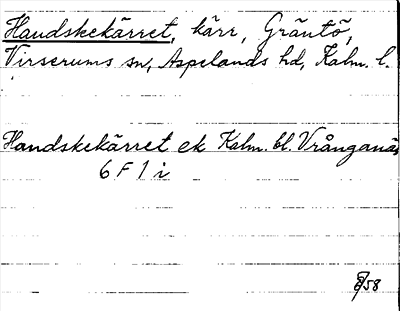 Handskekärret, kärr, Gräntö,
Virserums sn, Aspelands hd, Kalm. l.
Handskekärret ek Kalm. bl. Vrånganäs
6 F 1 i
58